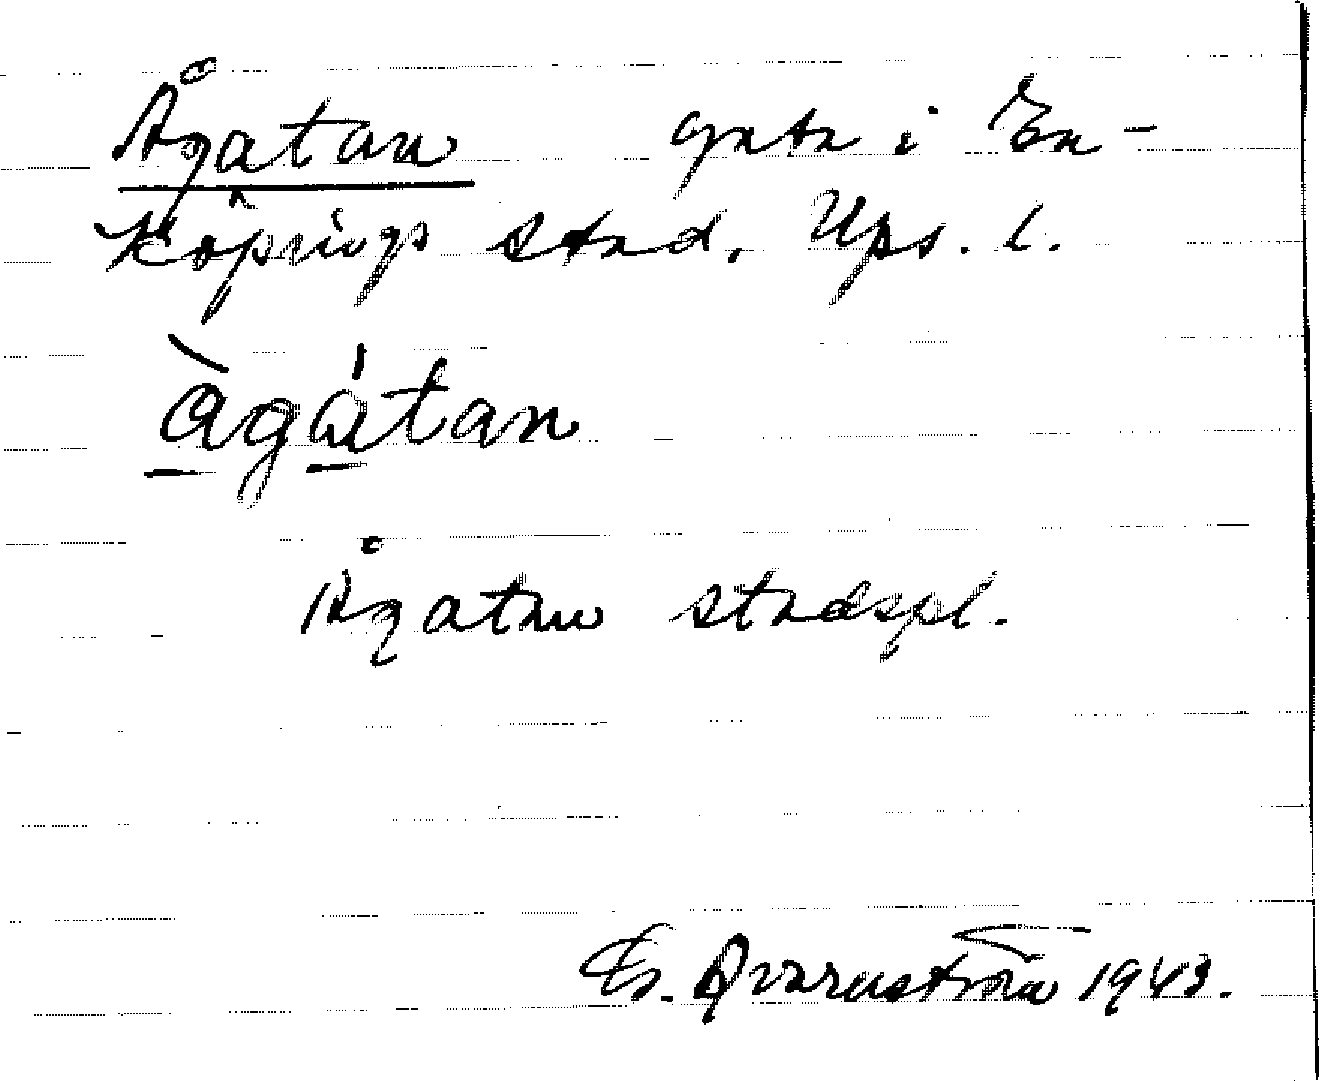 Ågatan gata i En-
köpings stad, Ups. l.
àgátan
Ågatan stadspl.
Qvarnström 1943.